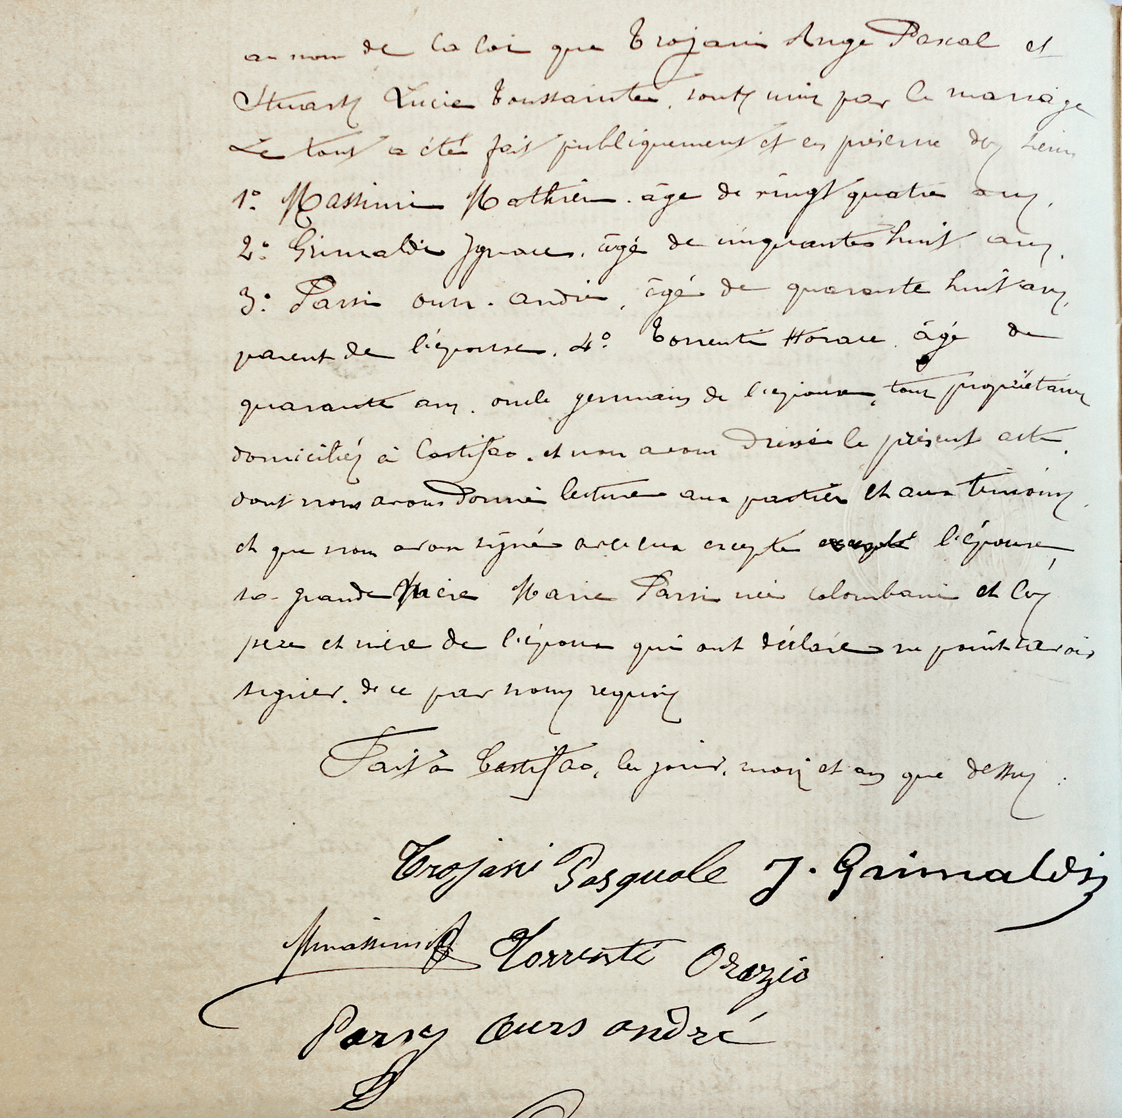 au nom de la loi que Trojani Ange Pascal et
Lucie Toussainte, sont unis par le mariage
Le tout a été fait publiquement et en présence des
1° Massimi Mathieu. âgé de vingt quatre ans,
2° Grimaldi Ignace, âgé de cinquante huit ans,
3° Parsi ours. andré, âgé de quarante huit ans,
parent de l'épouse, 4° Torrenti Horace, âgé de
quarante ans, oncle germain de l'épouse, tous propriétaires
domiciliés à Castifao, et nous avons dressé le présent acte,
dont nous avons donné lecture aux parties et aux témoins,
et que nous avons signé avec eux excepté l'épouse,
sa grande Mère Marie Parsi née colombani et les
père et mère de l'époux qui ont déclaré ne point savoir
signer, de ce par nous requis
Fait à Castifao, les jour, mois et an que dessus
Trojani Pasquale J. Grimaldi
Massimi Torrenti Orazio
Parsy Ours andré